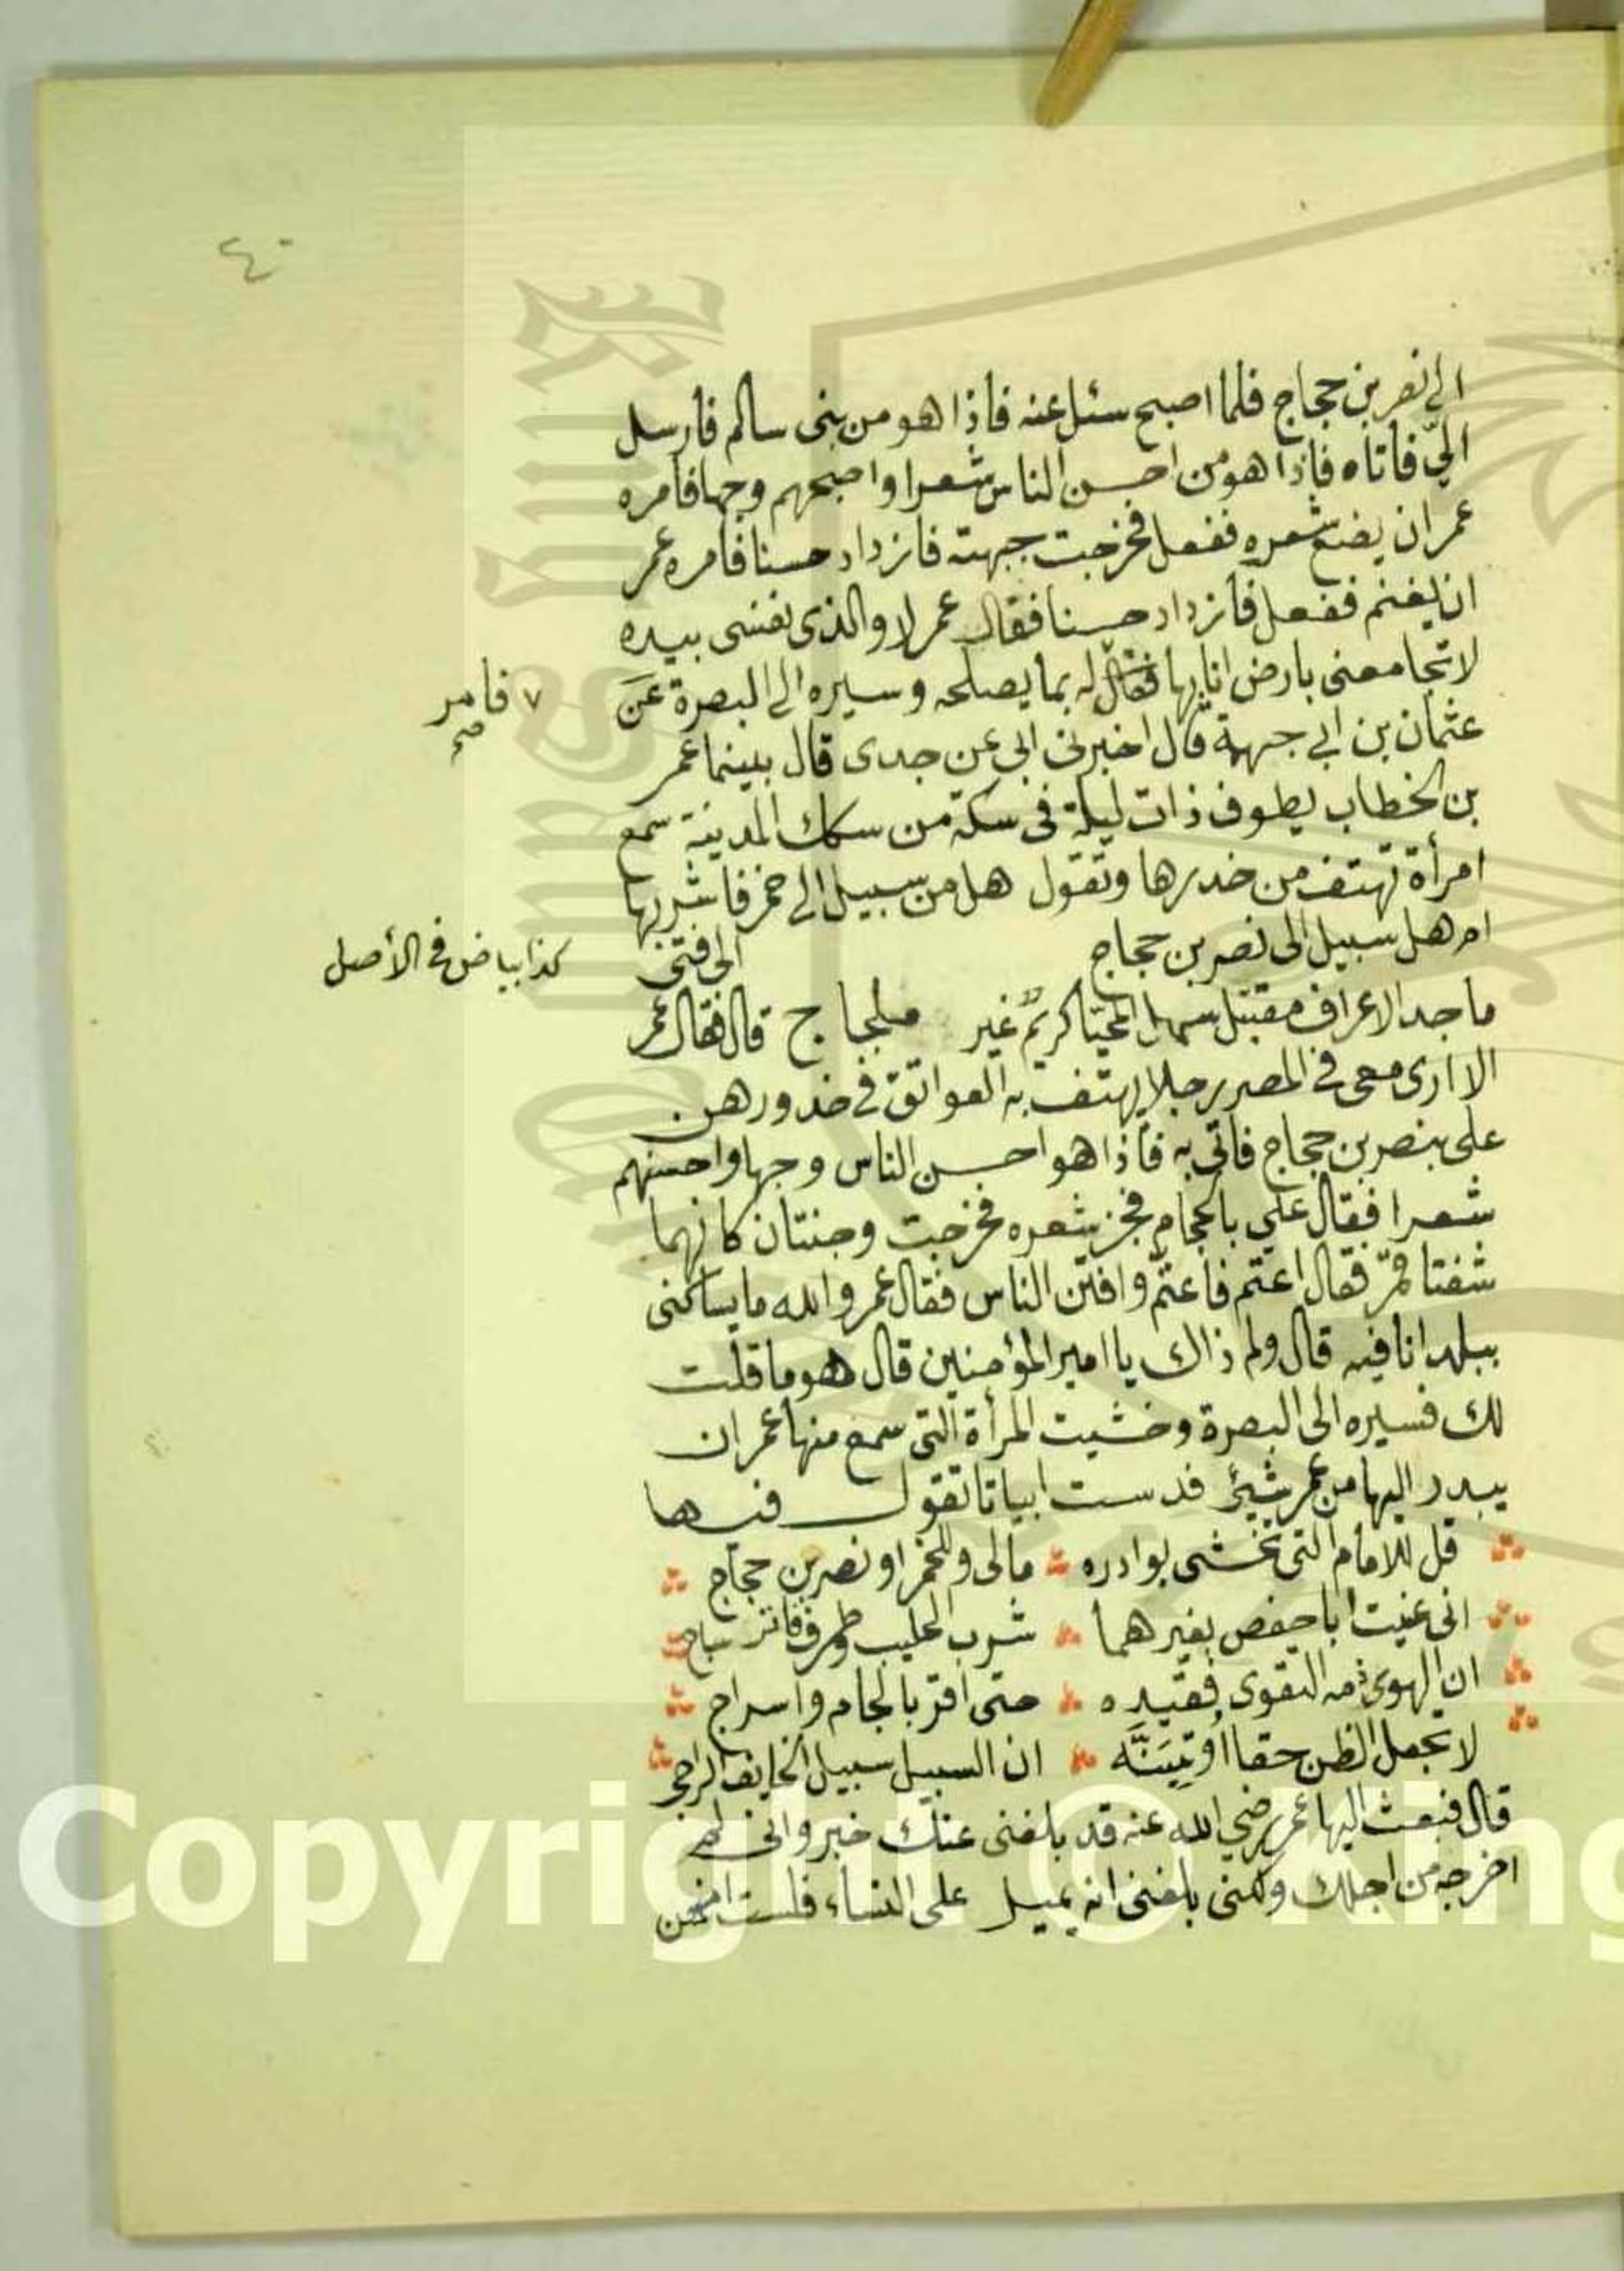 ٤٠
الى نصر بن حجاج فلما اصبح سئل عنه فاذا هو من بنى سالم فارسل
اليّ فاتاه فاذا هو من احسن الناس شعرا واصبحهم وجها فامره
عمر ان يضع شعره ففعل فخرجت جبهته فازداد حسنا فامره عمر
ان يغنم ففعل فازداد حسنا فقال عمر لا والذى نفسى بيده
لا تجامعنى بارض انا بها فقال له بما يصلحه وسيره الى البصرة عن
٧ فامر صح
عثمان بن ابي جهمة قال اخبرنى ابى عن جدى قال بينما عمر
بن الخطاب يطوف ذات ليلة فى سكة من سكك المدينة سمع
امرأة تهتف من خدرها وتقول هل من سبيل الى خمر فاشربها
ام هل سبيل الى نصر بن حجاج الى فتى
كذا بياض في الأصل
ماجد الاعراف مقتبل سهل المحيا كريم غير ملجاج قال فقال عمر
الا ارى معى في المصر رجلا يهتف به العواتق في خدورهن
على بنصر بن حجاج فاتى به فاذا هو احسن الناس وجها واحسنهم
شعرا فقال علي بالحجام فجز شعره فخرجت وجنتان كانهما
شفتا قمر فقال اعتم فاعتم وافتن الناس فقال عمر والله ما يساكنى
ببلد انا فيه قال ولم ذاك يا امير المؤمنين قال هو ما قلت
لك فسيره الى البصرة وخشيت المرأة التى سمع منها عمر ان
يبدر اليها من عمر شيئ فدست ابياتا تقول فيها
قل للامام التى تخشى بوادره مالى وللخمر او نصر بن حجاج
انى غنيت ابا حفص بغيرهما شرب الحليب وطرف فاتر ساج
ان الهوى ذمه التقوى فقيده حتى اقر بالجام واسراج
لا تجعل الظن حقا أو تبينه ان السبيل سبيل الخايف الراجى
قال فبعث اليها عمر رضي الله عنه قد بلغنى عنك خبر وانى لم
اخرجه من اجلك ولكنى بلغنى انه يميل على النساء فلست
Copyright © King